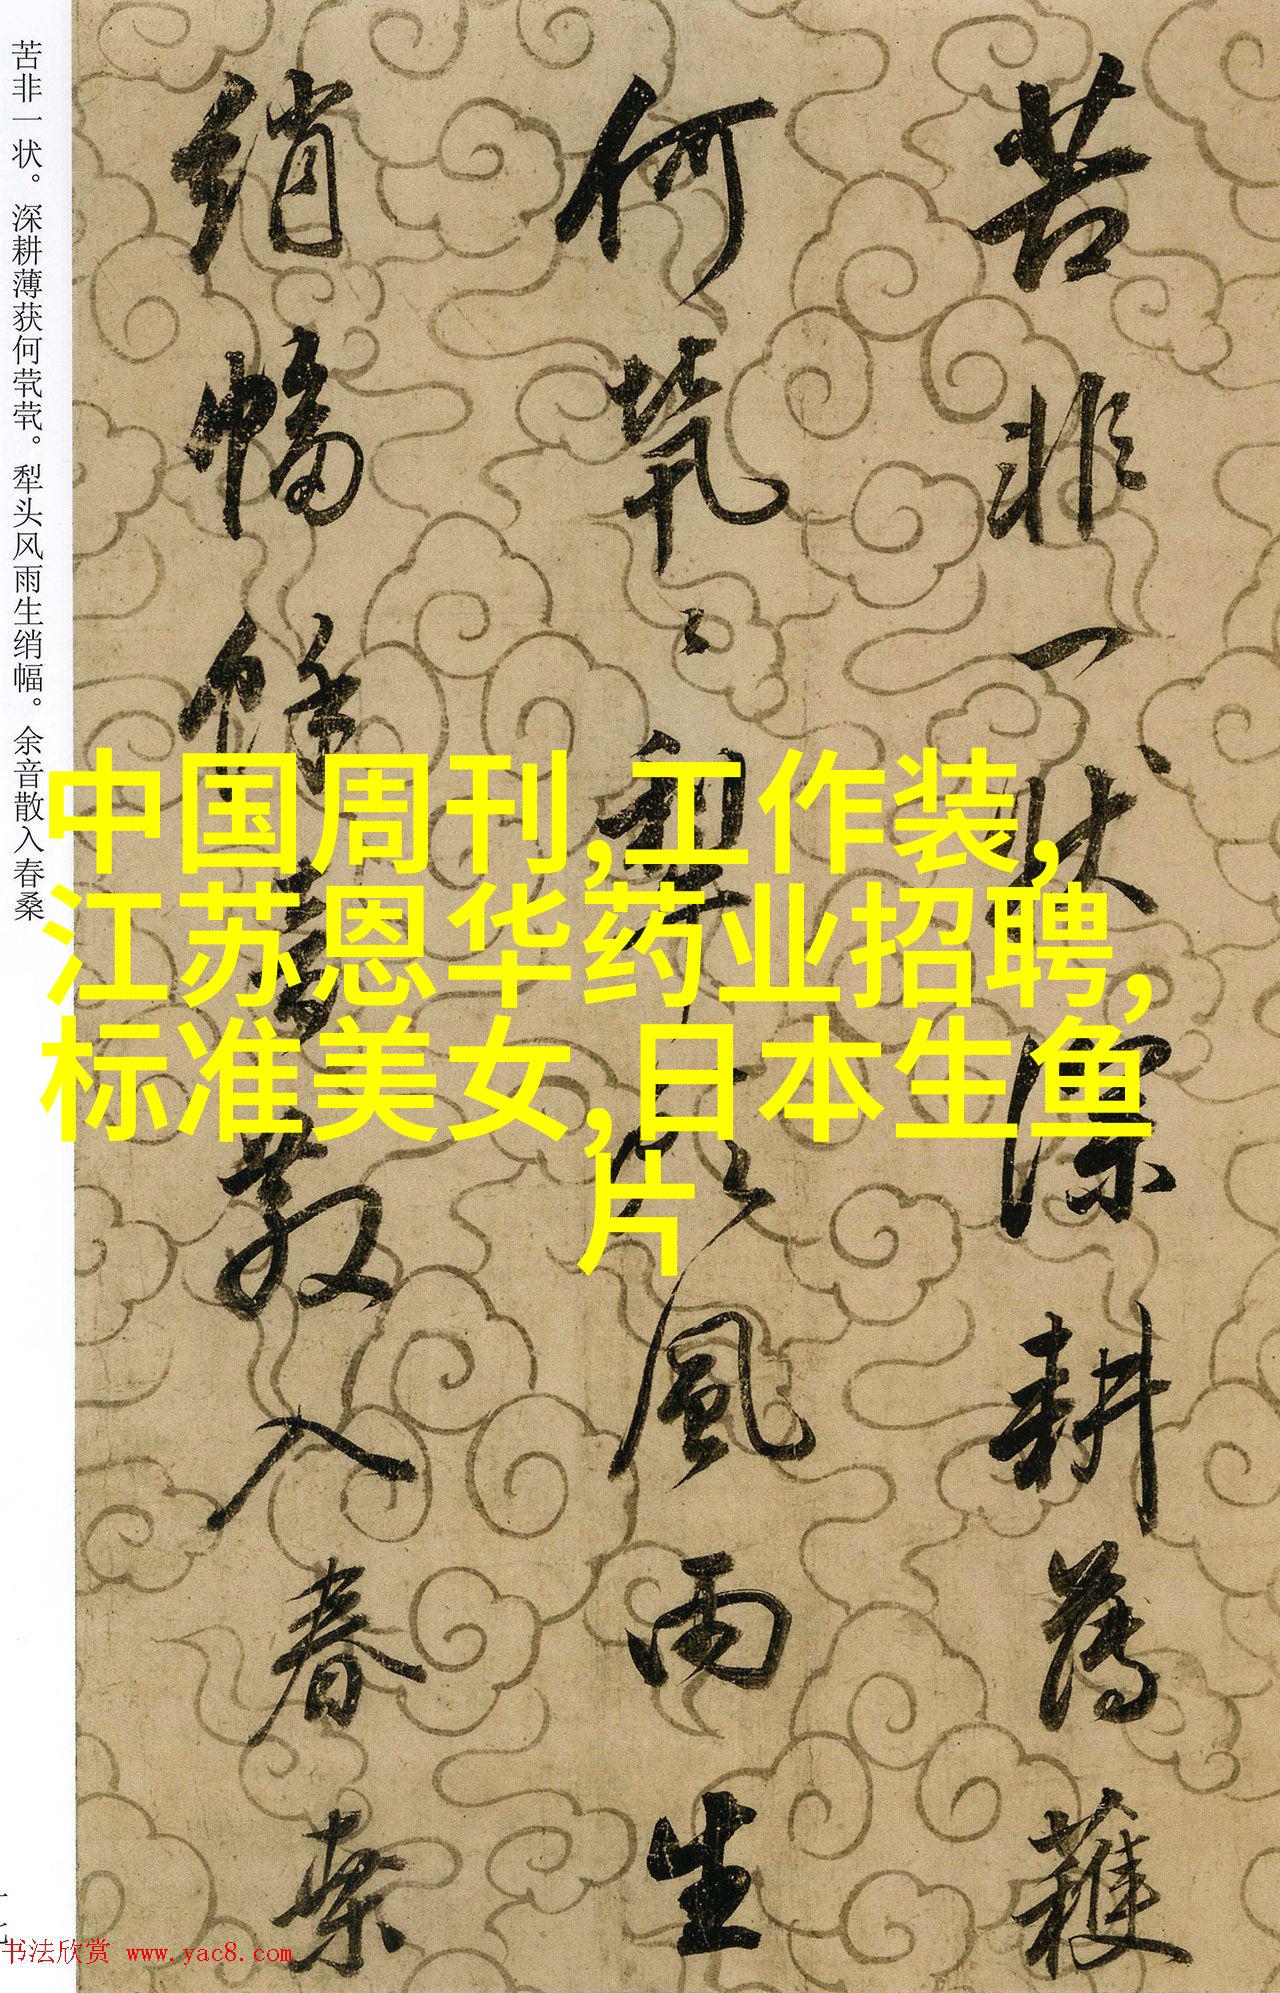 苦非一状深耕薄穫
何茕〻犁头風雨生
绡幅馀音散入春桑
苦非一状。深耕薄获何茕茕。犁头风雨生绡幅。余音散入春桑
中国周刊,工作装,
江苏恩华药业招聘,
标准美女,日本生鱼
片
十七
书法欣赏 www.yac8.com